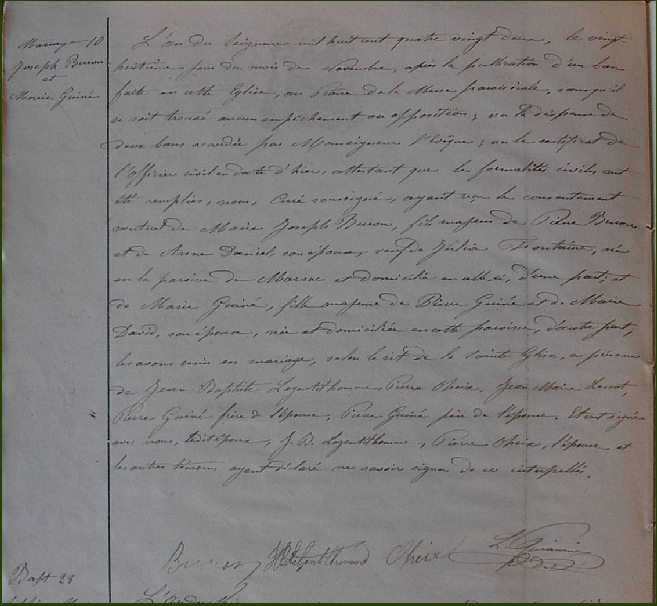 Mariage 10
Joseph Buron
et
Marie Guiné
L'an du Seigneur mil huit cent quatre vingt deux, le vingt
huitième jour du mois de Novembre, après la publication d'un ban
faite en cette Eglise, au Prône de la Messe paroissiale, sans qu'il
se soit trouvé aucun empêchement ou opposition; vu la dispense de
deux bans accordée par Monseigneur l'Evêque; vu le certificat de
l'Officier civil en date d'hier, attestant que les formalités civiles ont
été remplies, nous, Curé soussigné, ayant reçu le consentement
mutuel de Marie Joseph Buron, fils majeur de Pierre Buron
et de Anne Daniel, son épouse, veuf de Julie Fontaine, né
en la paroisse de Marsac et domicilié en celle-ci, d'une part, et
de Marie Guiné, fille majeure de Pierre Guiné et de Marie
David, son épouse, née et domiciliée en cette paroisse, d'autre part,
les avons unis en mariage, selon le rit de la Sainte Eglise, en présence
de Jean Baptiste Legentilhomme, Pierre Cheix, Jean Marie
Pierre Guiné frère de l'épouse, Pierre Guiné père de l'épouse. Et ont signé
avec nous, ledit époux, J. B. Legentilhomme, Pierre Cheix, l'épouse et
les autres témoins ayant déclaré ne savoir signer de ce interpellés.
Buron JB Legentilhomme Cheix
Bapt 28
L'an du